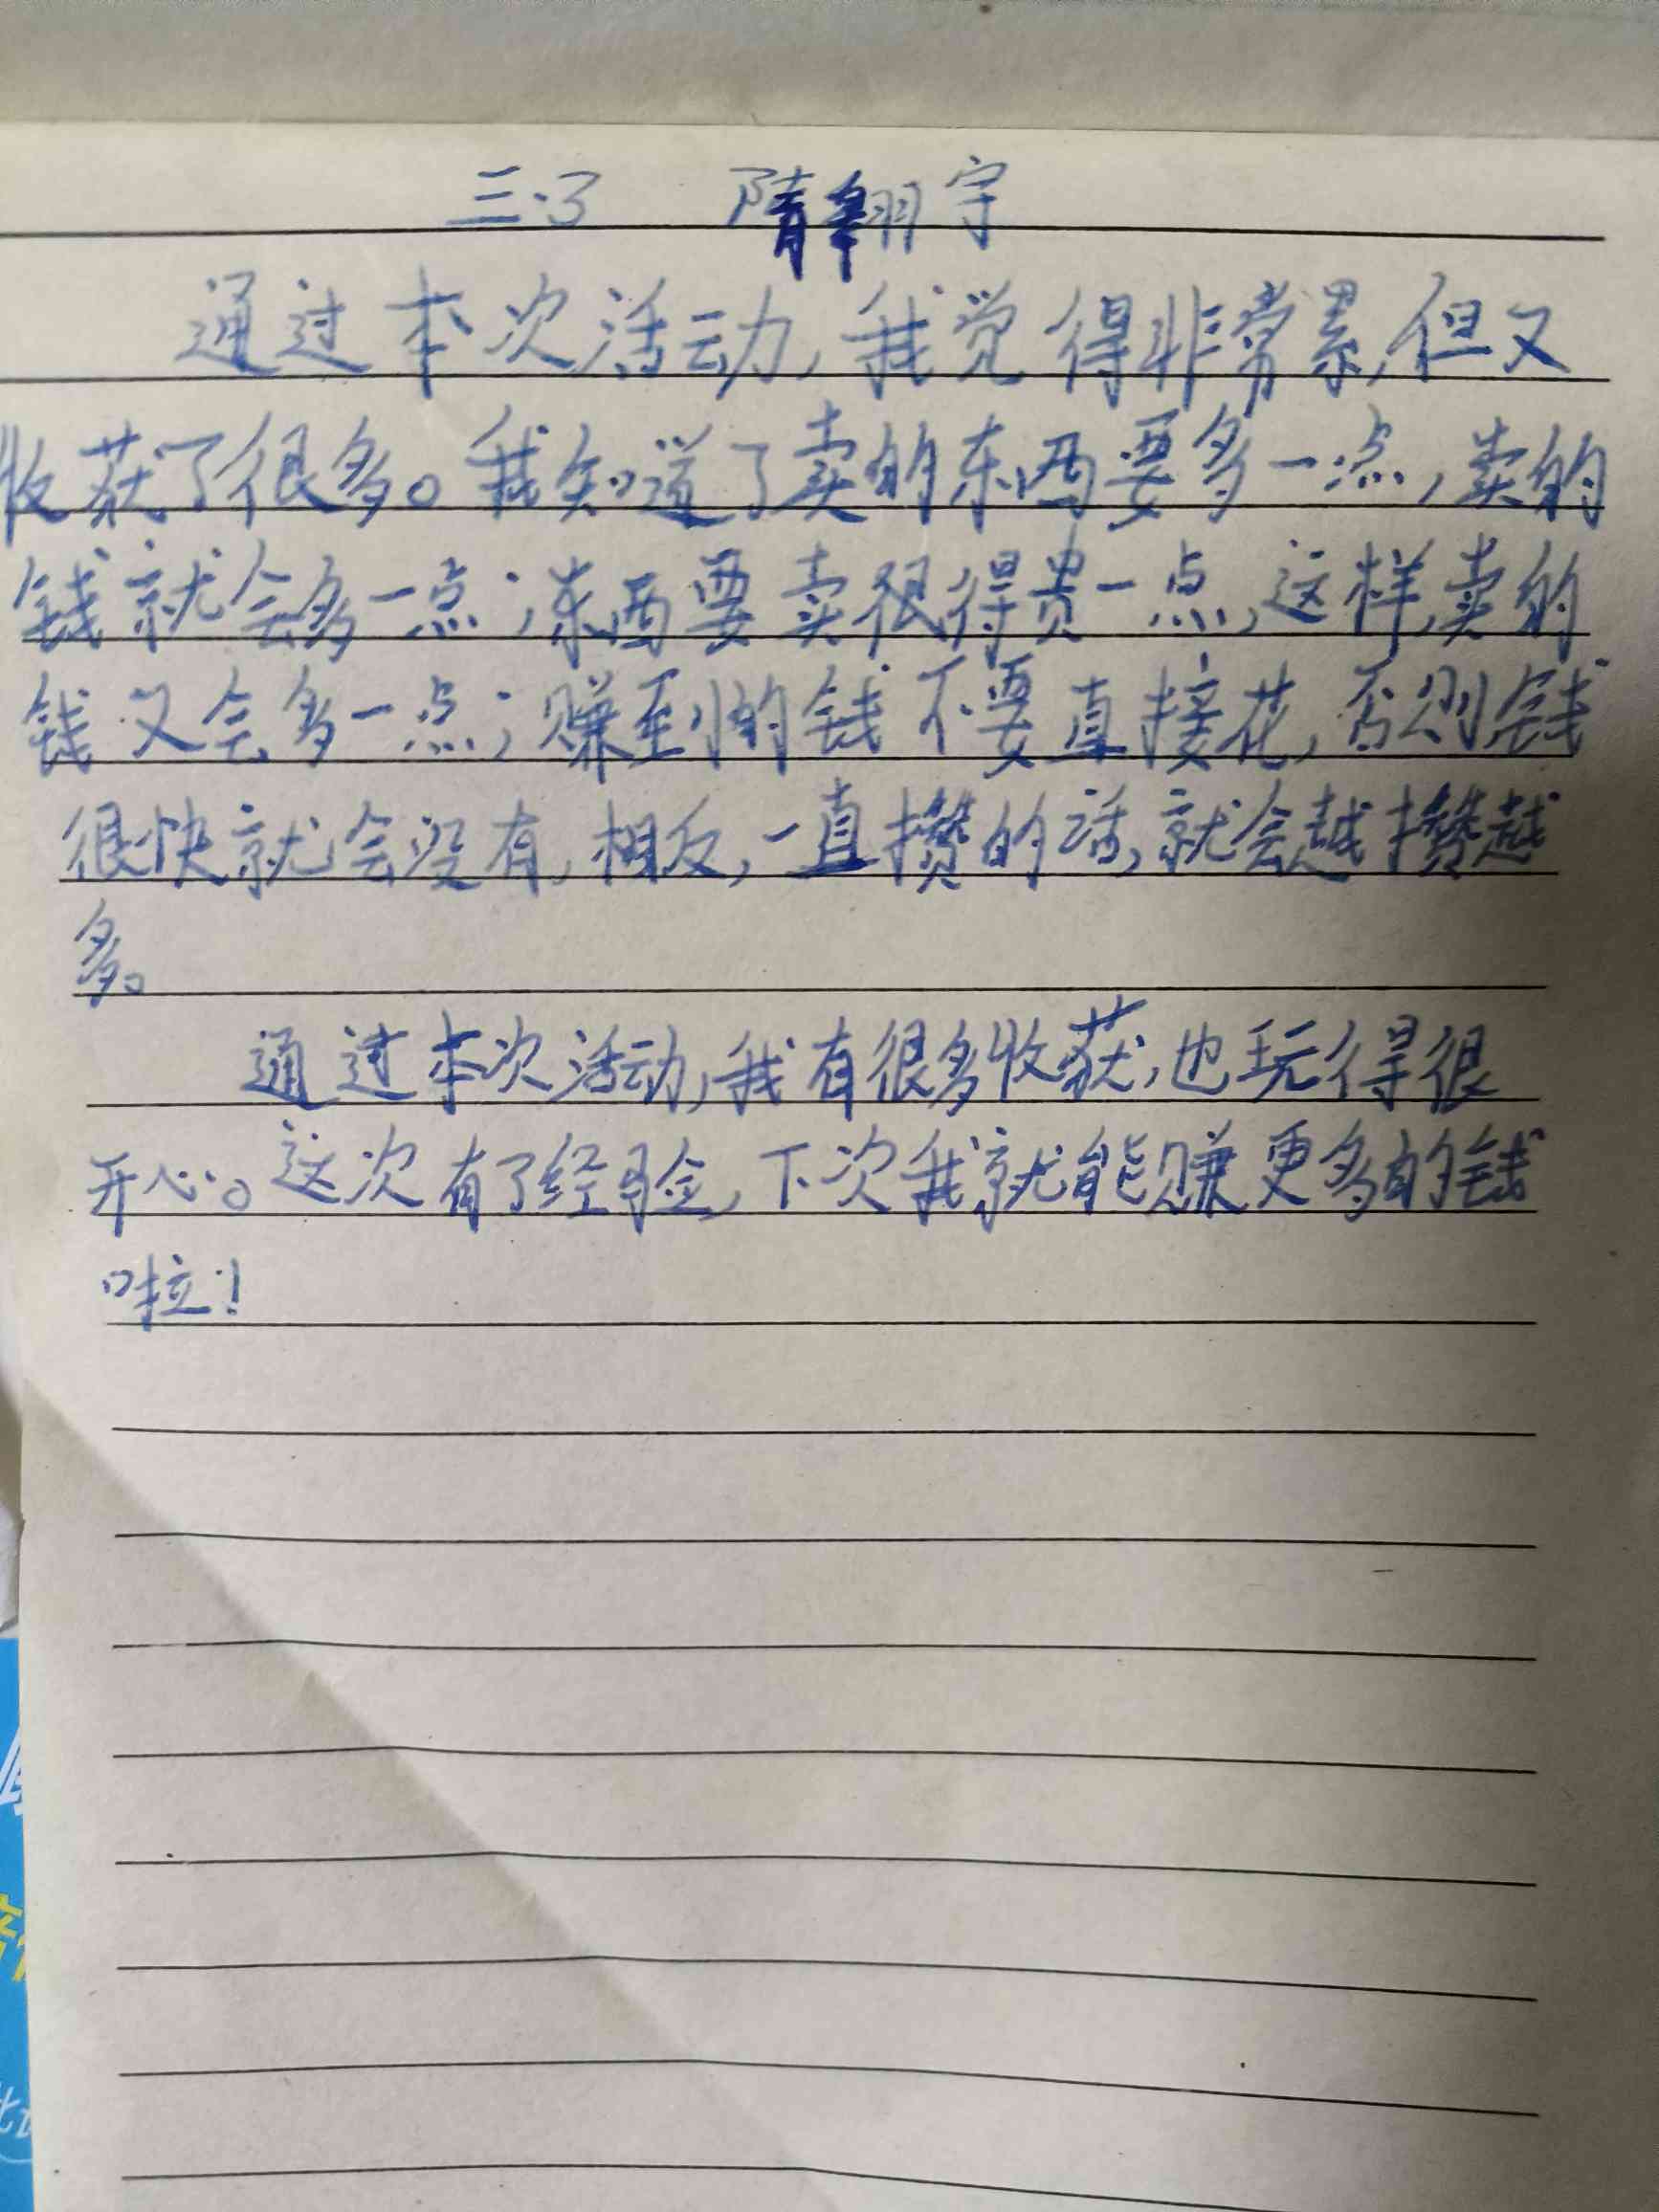 三.3 隋翱宇
通过本次活动,我觉得非常累,但又
收获了很多。我知道了卖的东西要多一点,卖的
钱就会多一点;东西要卖很得贵一点,这样,卖的
钱又会多一点;赚到的钱不要直接花,否则钱
很快就会没有,相反,一直攒的话,就会越攒越
多。
通过本次活动,我有很多收获,也玩得很
开心。这次有了经验,下次我就能赚更多的钱
啦!